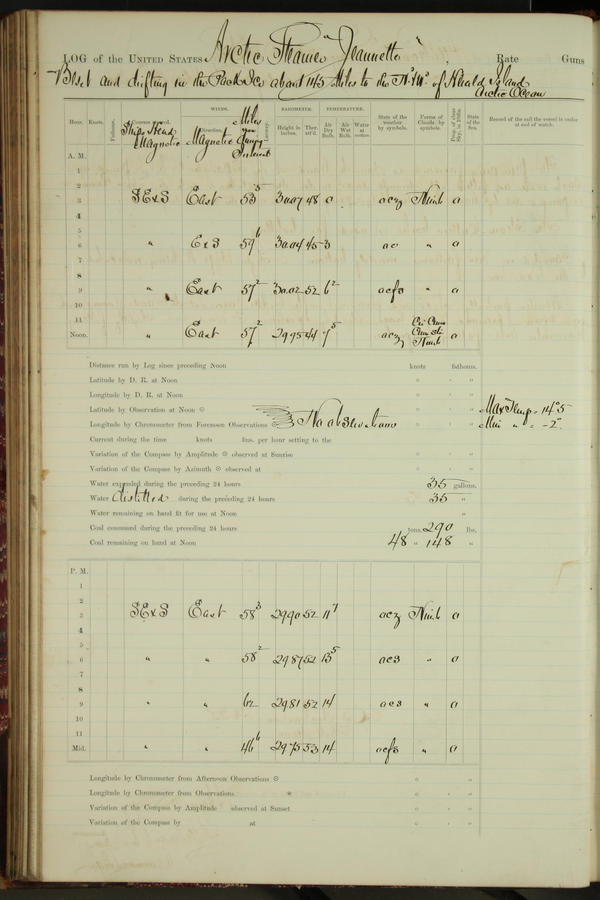 LOG of the UNITED STATES Arctic Steamer "Jeannette", Rate Guns
Beset and drifting in the Pack Ice about 145 Miles to the Nd & Wd of Herald Island
Arctic Ocean
Hour. Knots. Fathoms. Courses Ship's Head Magnetic WINDS. Direction. Magnetic Miles BAROMETER. Height in inches. Ther. att'd. TEMPERATURE. Air Dry Bulb. Air Wet Bulb. Water at surface. State of the weather by symbols. Forms of Clouds by symbols. Prop. of clear Sky, in 10ths. State of the Sea. Record of the sail the vessel is under at end of watch.
A. M.
1
2
3 SE x S East 53 5 30.07 48 0 Nimb 0
4
5
6 " E x S 59 6 30.04 45 3 " 0
7
8
9 " East 57 2 30.02 52 6 2 " 0
10
11
Noon. " East 57 2 29.95 44 7 5 Nimb 0
Distance run by Log since preceding Noon knots fathoms.
Latitude by D. R. at Noon ° ' "
Longitude by D. R. at Noon ° ' "
Latitude by Observation at Noon ° ' " Max Temp = 14°5
Longitude by Chronometer from Forenoon Observations No observations ° ' " Min " = -2°
Current during the time knots fms. per hour setting to the
Variation of the Compass by Amplitude observed at Sunrise ° ' "
Variation of the Compass by Azimuth observed at ° ' "
Water expended during the preceding 24 hours 35 gallons.
Water distilled during the preceding 24 hours 35 "
Water remaining on hand fit for use at Noon "
Coal consumed during the preceding 24 hours tons, 290 lbs.
Coal remaining on hand at Noon 48 " 148 "
P. M.
1
2
3 SE x S East 58 3 29.90 52 11 7 Nimb 0
4
5
6 " " 58 2 29.87 52 13 5 " 0
7
8
9 " " 29.81 52 14 " 0
10
11
Mid. " " 46 6 29.75 53 14 " 0
Longitude by Chronometer from Afternoon Observations ° ' "
Longitude by Chronometer from Observations * ° ' "
Variation of the Compass by Amplitude observed at Sunset ° ' "
Variation of the Compass by at ° ' "